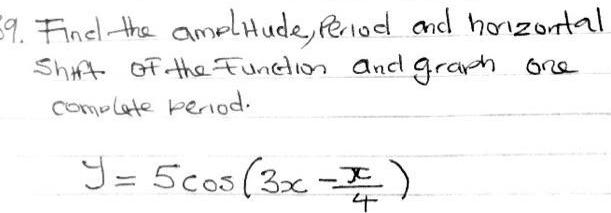 39. Find the amplitude, Period and horizontal
Shift of the Function and graph one
complete period.
y = 5cos(3x - x/4)